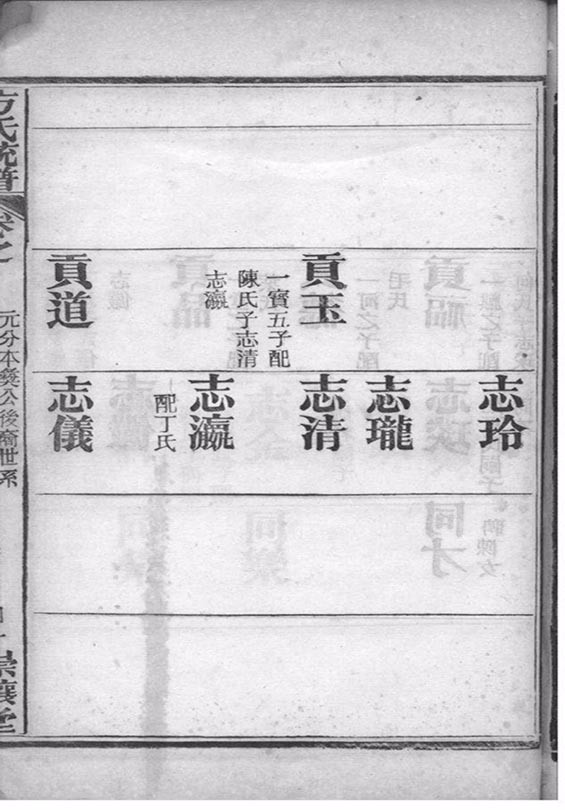 貢玉
一寶五子配
陳氏子志清
志瀛
貢道
志玲
志瓏
志清
志瀛
配丁氏
志儀
方氏統譜
卷之
元分本公後裔世系
讓堂